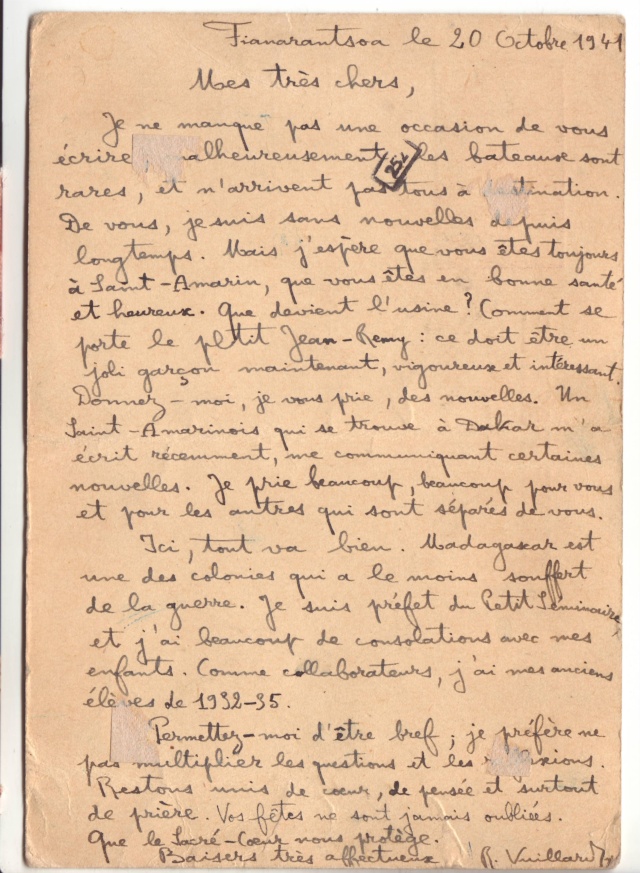 Fianarantsoa le 20 Octobre 1941
Mes très chers,
Je ne manque pas une occasion de vous
écrire alheureusement les bateaux sont
252
rares, et n'arrivent pas tous à tination.
De vous, je suis sans nouvelles depuis
longtemps. Mais j'espère que vous êtes toujours
à Saint-Amarin, que vous êtes en bonne santé
et heureux. Que devient l'usine? Comment se
porte le petit Jean-Remy : ce doit être un
joli garçon maintenant, vigoureux et intéressant.
Donnez-moi, je vous prie, des nouvelles. Un
Saint-Amarinois qui se trouve à Dakar m'a
écrit récemment, me communiquant certaines
nouvelles. Je prie beaucoup, beaucoup pour vous
et pour les autres qui sont séparés de vous.
Ici, tout va bien. Madagaskar est
une des colonies qui a le moins souffert
de la guerre. Je suis préfet du Petit Séminaire,
et j'ai beaucoup de consolations avec mes
enfants. Comme collaborateurs, j'ai mes anciens
élèves de 1932-35.
Permettez-moi d'être bref ; je préfère ne
pas multiplier les questions et les xions.
Restons unis de cœur, de pensée et surtout
de prière. Vos fêtes ne sont jamais oubliées.
Que le Sacré-Cœur nous protège.
Baisers très affectueux R. Vuillard